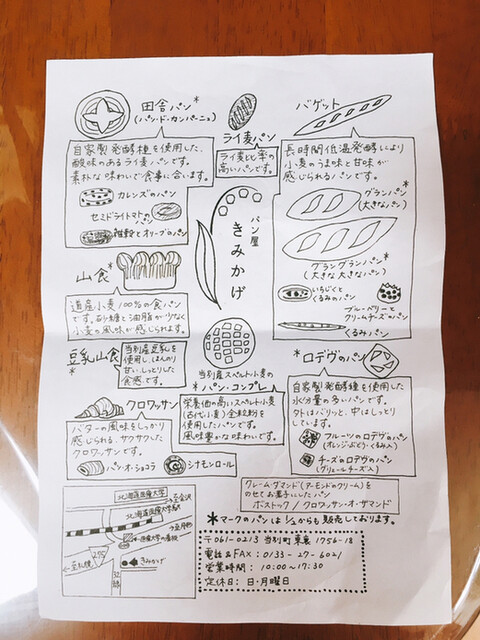 田舎パン*
(パン・ド・カンパーニュ)
自家製発酵種を使用した、
酸味のあるライ麦パンです。
素朴な味わいで食事に合います。
カレンズのパン
セミドライトマトの
パン
雑穀とオリーブのパン
ライ麦パン
ライ麦比率の
高いパンです。
バゲット
長時間低温発酵により
小麦のうま味と甘味が
感じられるパンです。
グランパン*
(大きなパン)
グラングランパン*
(大きな大きなパン)
いちじくと
くるみのパン
ブルーベリーと
クリームチーズのパン
くるみパン
パン屋
きみかげ
山食*
道産小麦100%の食パン
です。砂糖と油脂が少なく
小麦の風味が感じられます。
豆乳山食
*
当別産豆乳を
使用し、ほんのり
甘い、しっとりした
食感です。
当別産スペルト小麦の
*パン・コンプレ
栄養価の高いスペルト小麦
(古代小麦)全粒粉を
使用したパンです。
風味豊かな味わいです。
*ロデヴのパン
自家製発酵種を使用した
水分量の多いパンです。
外はパリッと、中はしっとり
しています。
フルーツのロデヴのパン
(オレンジ・ぶどう・くるみ入)
チーズのロデヴのパン
(グリュエールチーズ入)
クロワッサン
バターの風味をしっかり
感じられる、サクサクした
クロワッサンです。
パン・オ・ショコラ
シナモンロール
クレームダマンド(アーモンドのクリーム)を
のせてお菓子にしたパン
ボストック / クロワッサン・オ・ザマンド
*マークのパンは1/2からも販売しております。
北海道医療大学
至金沢
北海道医療大学駅
至月形
医療大学の看板
275
至札幌
きみかげ
32線
〒061-0213 当別町東裏1756-18
電話&FAX:0133-27-6021
営業時間:10:00~17:30
定休日:日・月曜日